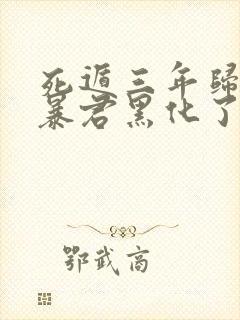 死遁三年歸
暴君黑化了
鄂武商